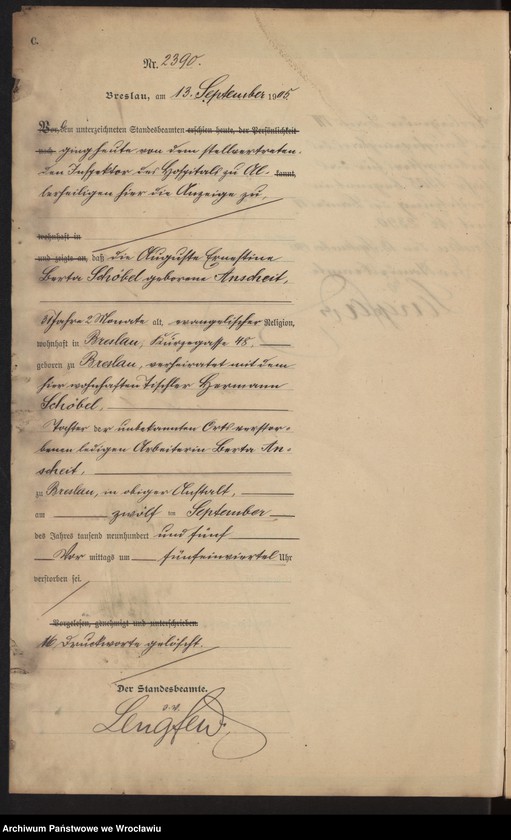 C.
Nr. 2390.
Breslau, am 13. September 1905.
Vor dem unterzeichneten Standesbeamten erschien heute, der Persönlichkeit
nach ging heute von dem stellvertreten-
den Inspektor des Hospitals zu Al- kannt,
lerheiligen hier die Anzeige zu,
wohnhaft in
und zeigte an, daß die Auguste Ernestine
Berta Schöbel geborene Anscheit,
Jahre 2 Monate alt, evangelischer Religion,
wohnhaft in Breslau, Kurzegasse 48,
geboren zu Breslau, verheiratet mit dem
hier wohnhaften Tischler Hermann
Schöbel,
Tochter der unbekannten Orts verstor-
benen ledigen Arbeiterin Berta An-
scheit,
zu Breslau, in obiger Anstalt,
am zwölf ten September
des Jahres tausend neunhundert und fünf
Vor mittags um fünfeinviertel Uhr
verstorben sei.
Vorgelesen, genehmigt und unterschrieben.
Druckworte gelöscht.
Der Standesbeamte.
Lengfeld
Archiwum Państwowe we Wrocławiu